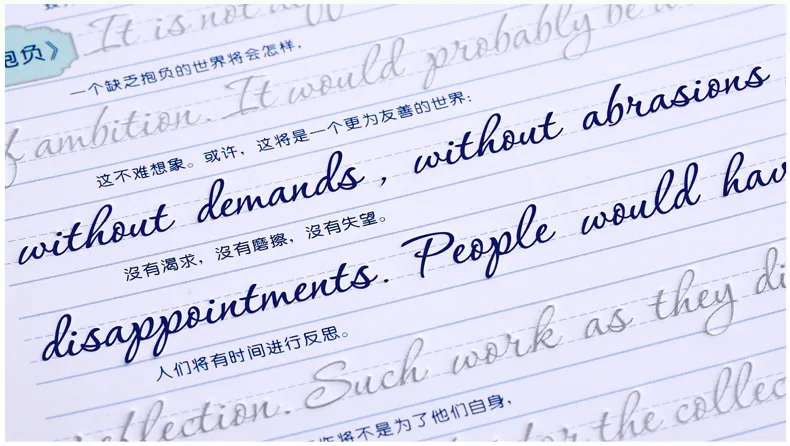 It is not
抱负》
一个缺乏抱负的世界将会怎样，
ambition. It would probably be
这不难想象。或许，这将是一个更为友善的世界：
without demands , without abrasions
沒有渴求，沒有磨擦，沒有失望。
disappointments. People would hav
人们将有时间进行反思。
reflection. Such work as they di
将不是为了他们自身，
for the collec